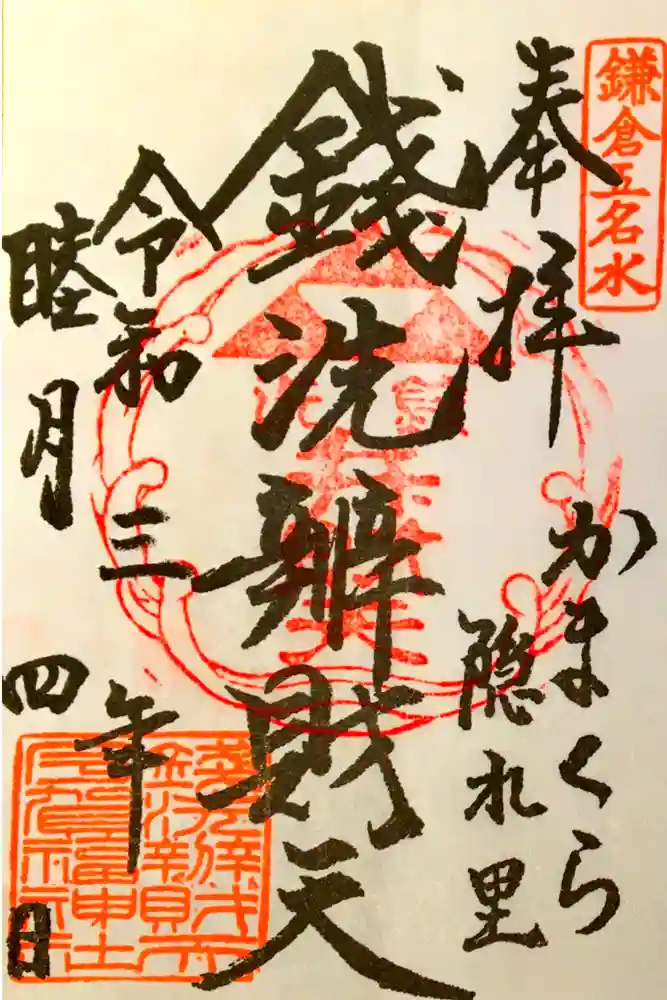 鎌倉五名水
奉拝
かまくら
隠れ里
銭洗辨財天
令和三年
睦月四日